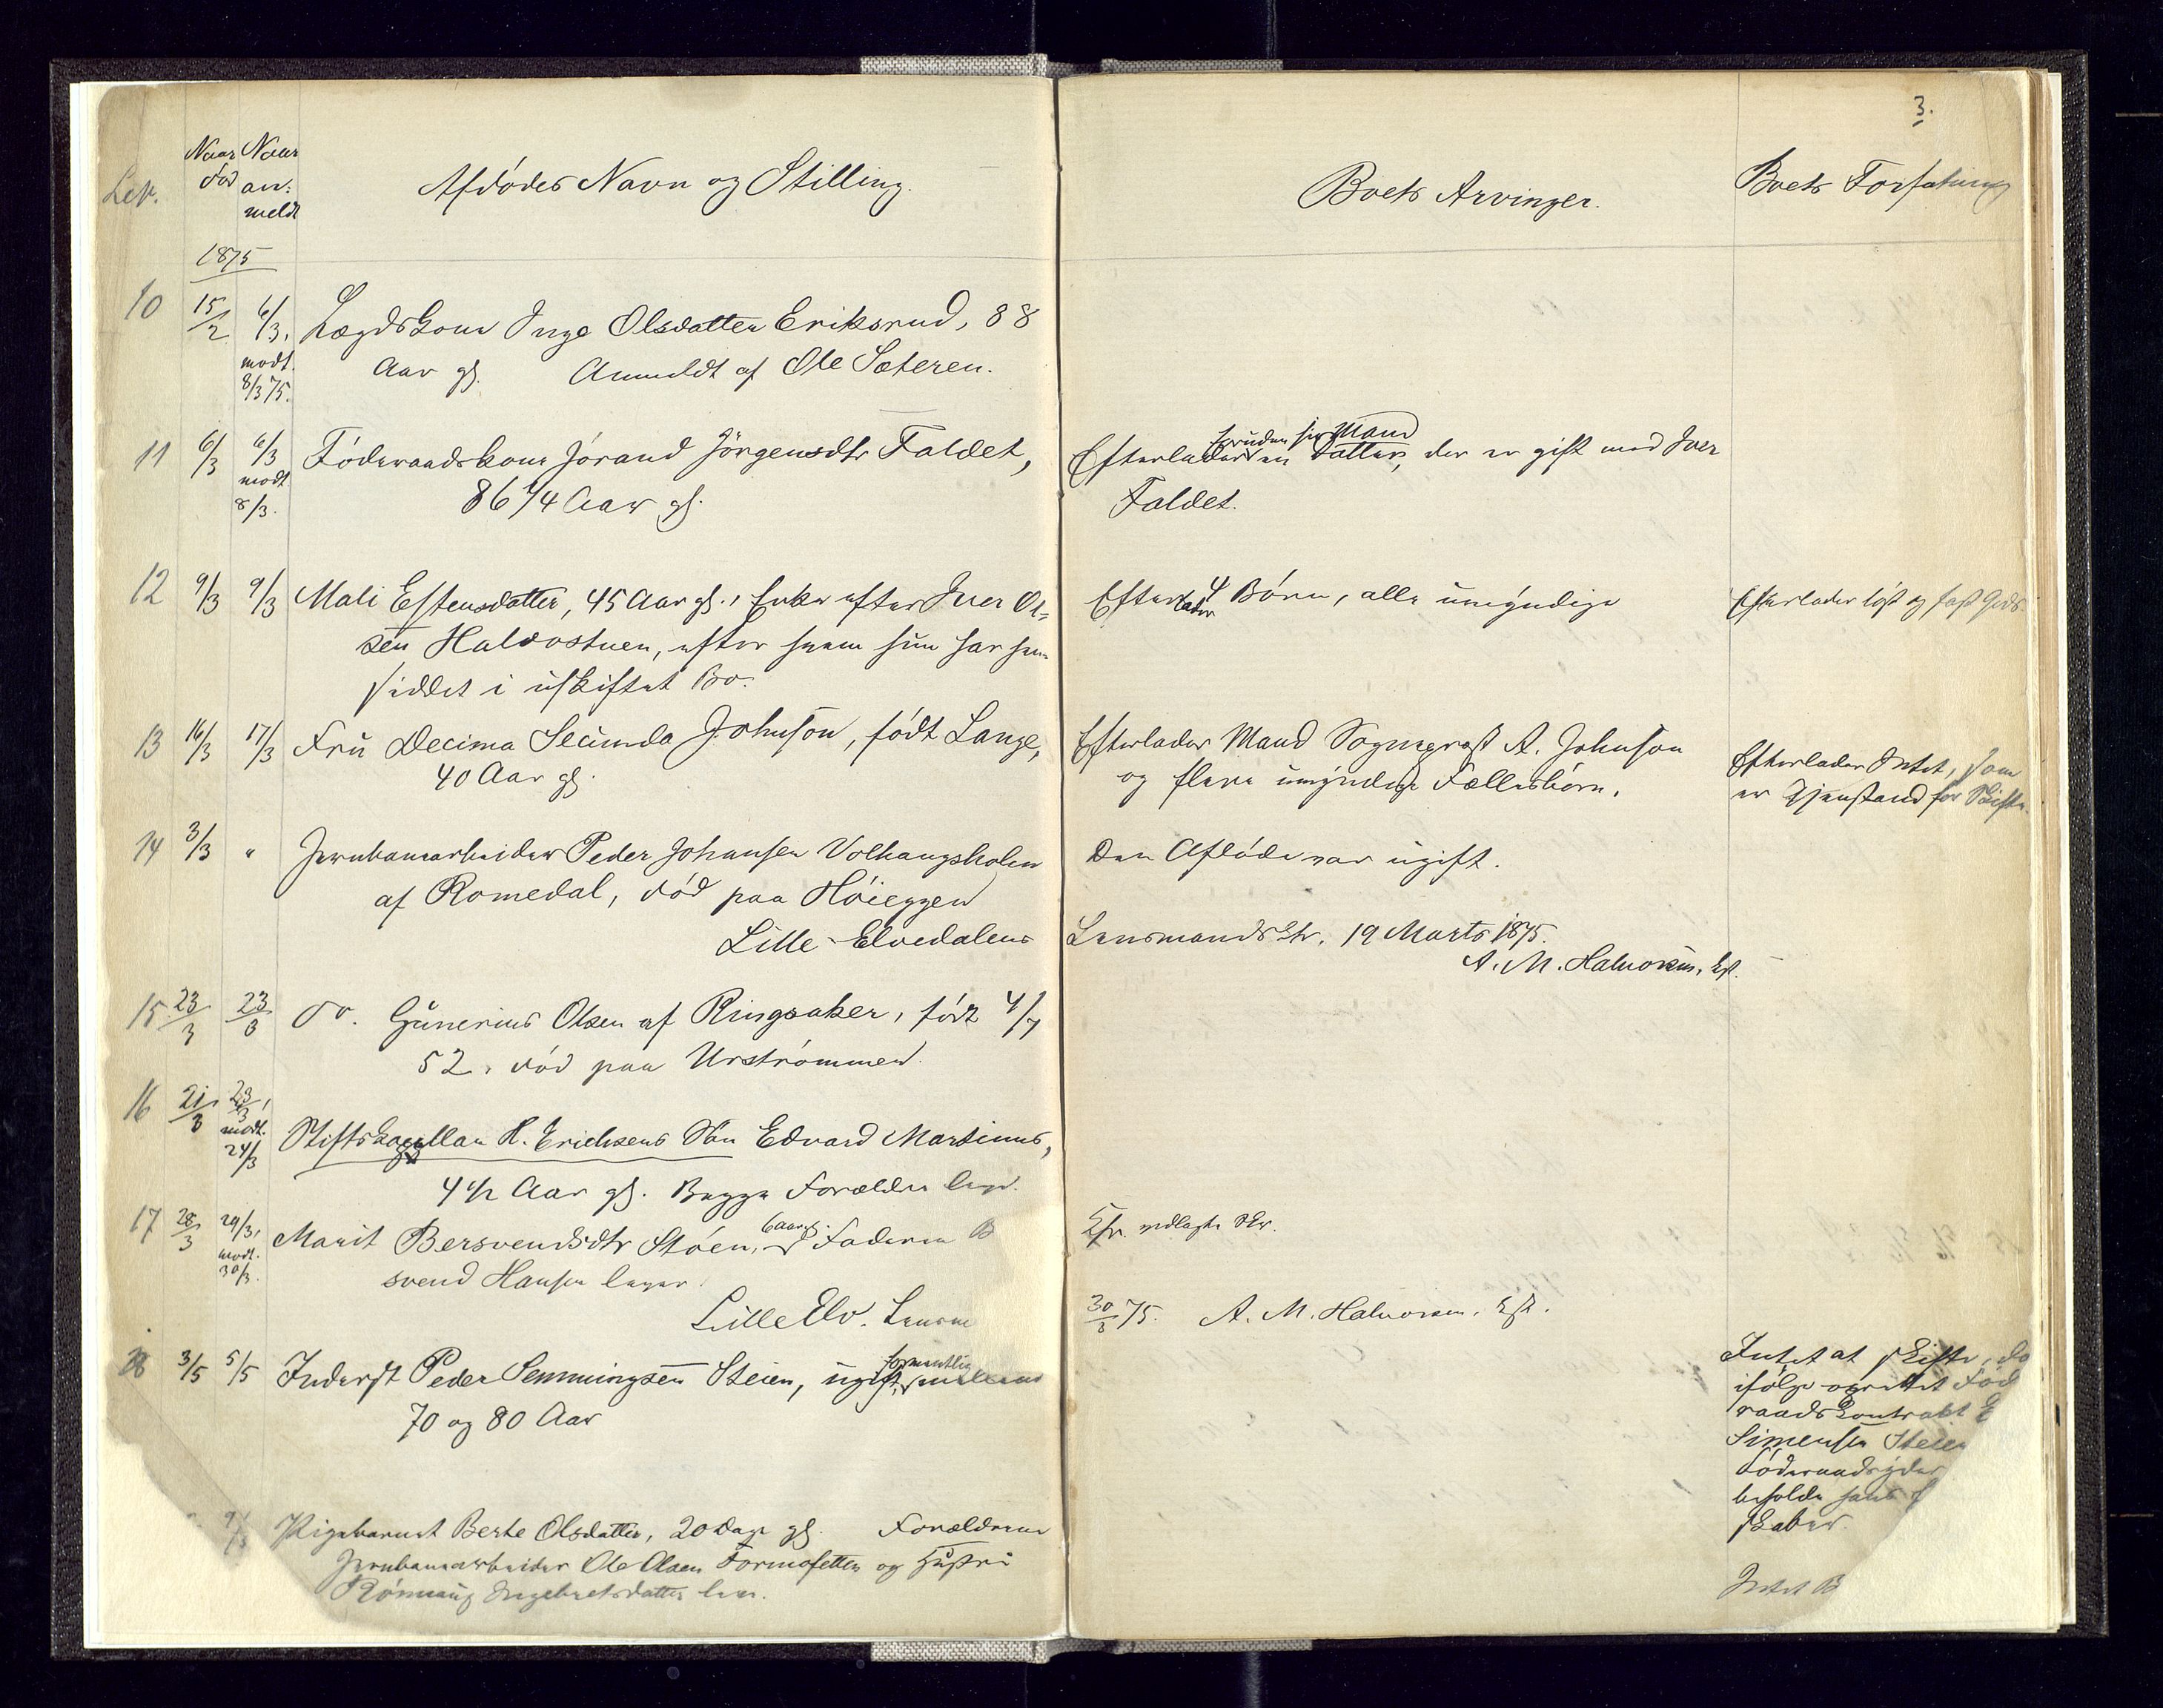 3.
Naar Naar
død an:
meldt
Afdødes Navn og Stilling.
Boets Arvinger.
Boets Forfatning
1875
10 15/2 6/3, Lægdskone Inge Olsdatter Eriksrud, 88
modt. 8/3 75. Aar gl. Anmeldt af Ole Sæteren.
11 6/3 6/3 Föderaadskone Jörand Jörgensdtr Faldet,
modt 8/3. 86 1/4 Aar gl.
foruden sin Mand
Efterlader en Datter, der er gift med Iver
Faldet.
12 9/3 9/3 Mali Estensdatter, 45 Aar gl., Enke efter Iver Ol-
sen Haldostuen, efter hvem hun har hen
siddet i uskiftet Bo.
Efterlader 4 Börn, alle umyndige
Efterlader löst og fast Gods
13 16/3 17/3 Fru Decima Secunda Johnson, födt Lange,
40 Aar gl.
Efterlader Mand Sogneprest A. Johnson
og flere umyndige Fællesbörn.
Efterlader Intet, som
er Gjenstand for Skifte.
14 3/3 " Jernbanearbeider Peder Johansen Volhaugsholen
af Romedal, död paa Höieggen
Den Aflöde var ugift.
Lille-Elvedalens Lensmandsktr. 19 Marts 1875.
A. M. Halvorsen, Kst.
15 23/3 23/3 do. Gunerius Olsen af Ringsaker, födt 4/7
52, död paa Urströmmen.
16 21/3 23/3, modt. 24/3
Stiftskapellan H. Erichsens Sön Edvard Martinus,
4 1/2 Aar gl. Begge Forældre lever.
17 28/3 29/3, modt. 30/3.
6 Aar gl.
Marit Bersvendsdtr Stöen, Faderen B
svend Hansen lever.
Cfr. vedlagte Skr.
Lille Elv. Lensm
30/3 75. A. M. Halvorsen. Kst.
18 3/5 5/5 Inderst Peder Semmingsen Steien, ugift, formentlig mellem
70 og 80 Aar
Intet at skifte, da
ifölge oprettet Föd
raadskontrakt E
Simensen Steien
Föderaadsyder
beholde hans
skaber.
Pigebarnet Berte Olsdatter, 20 Dage gl. Forældrene
Jernbanearbeider Ole Olsen Tormosetten og Hustru
Ingebretsdatter lever.
Intet B